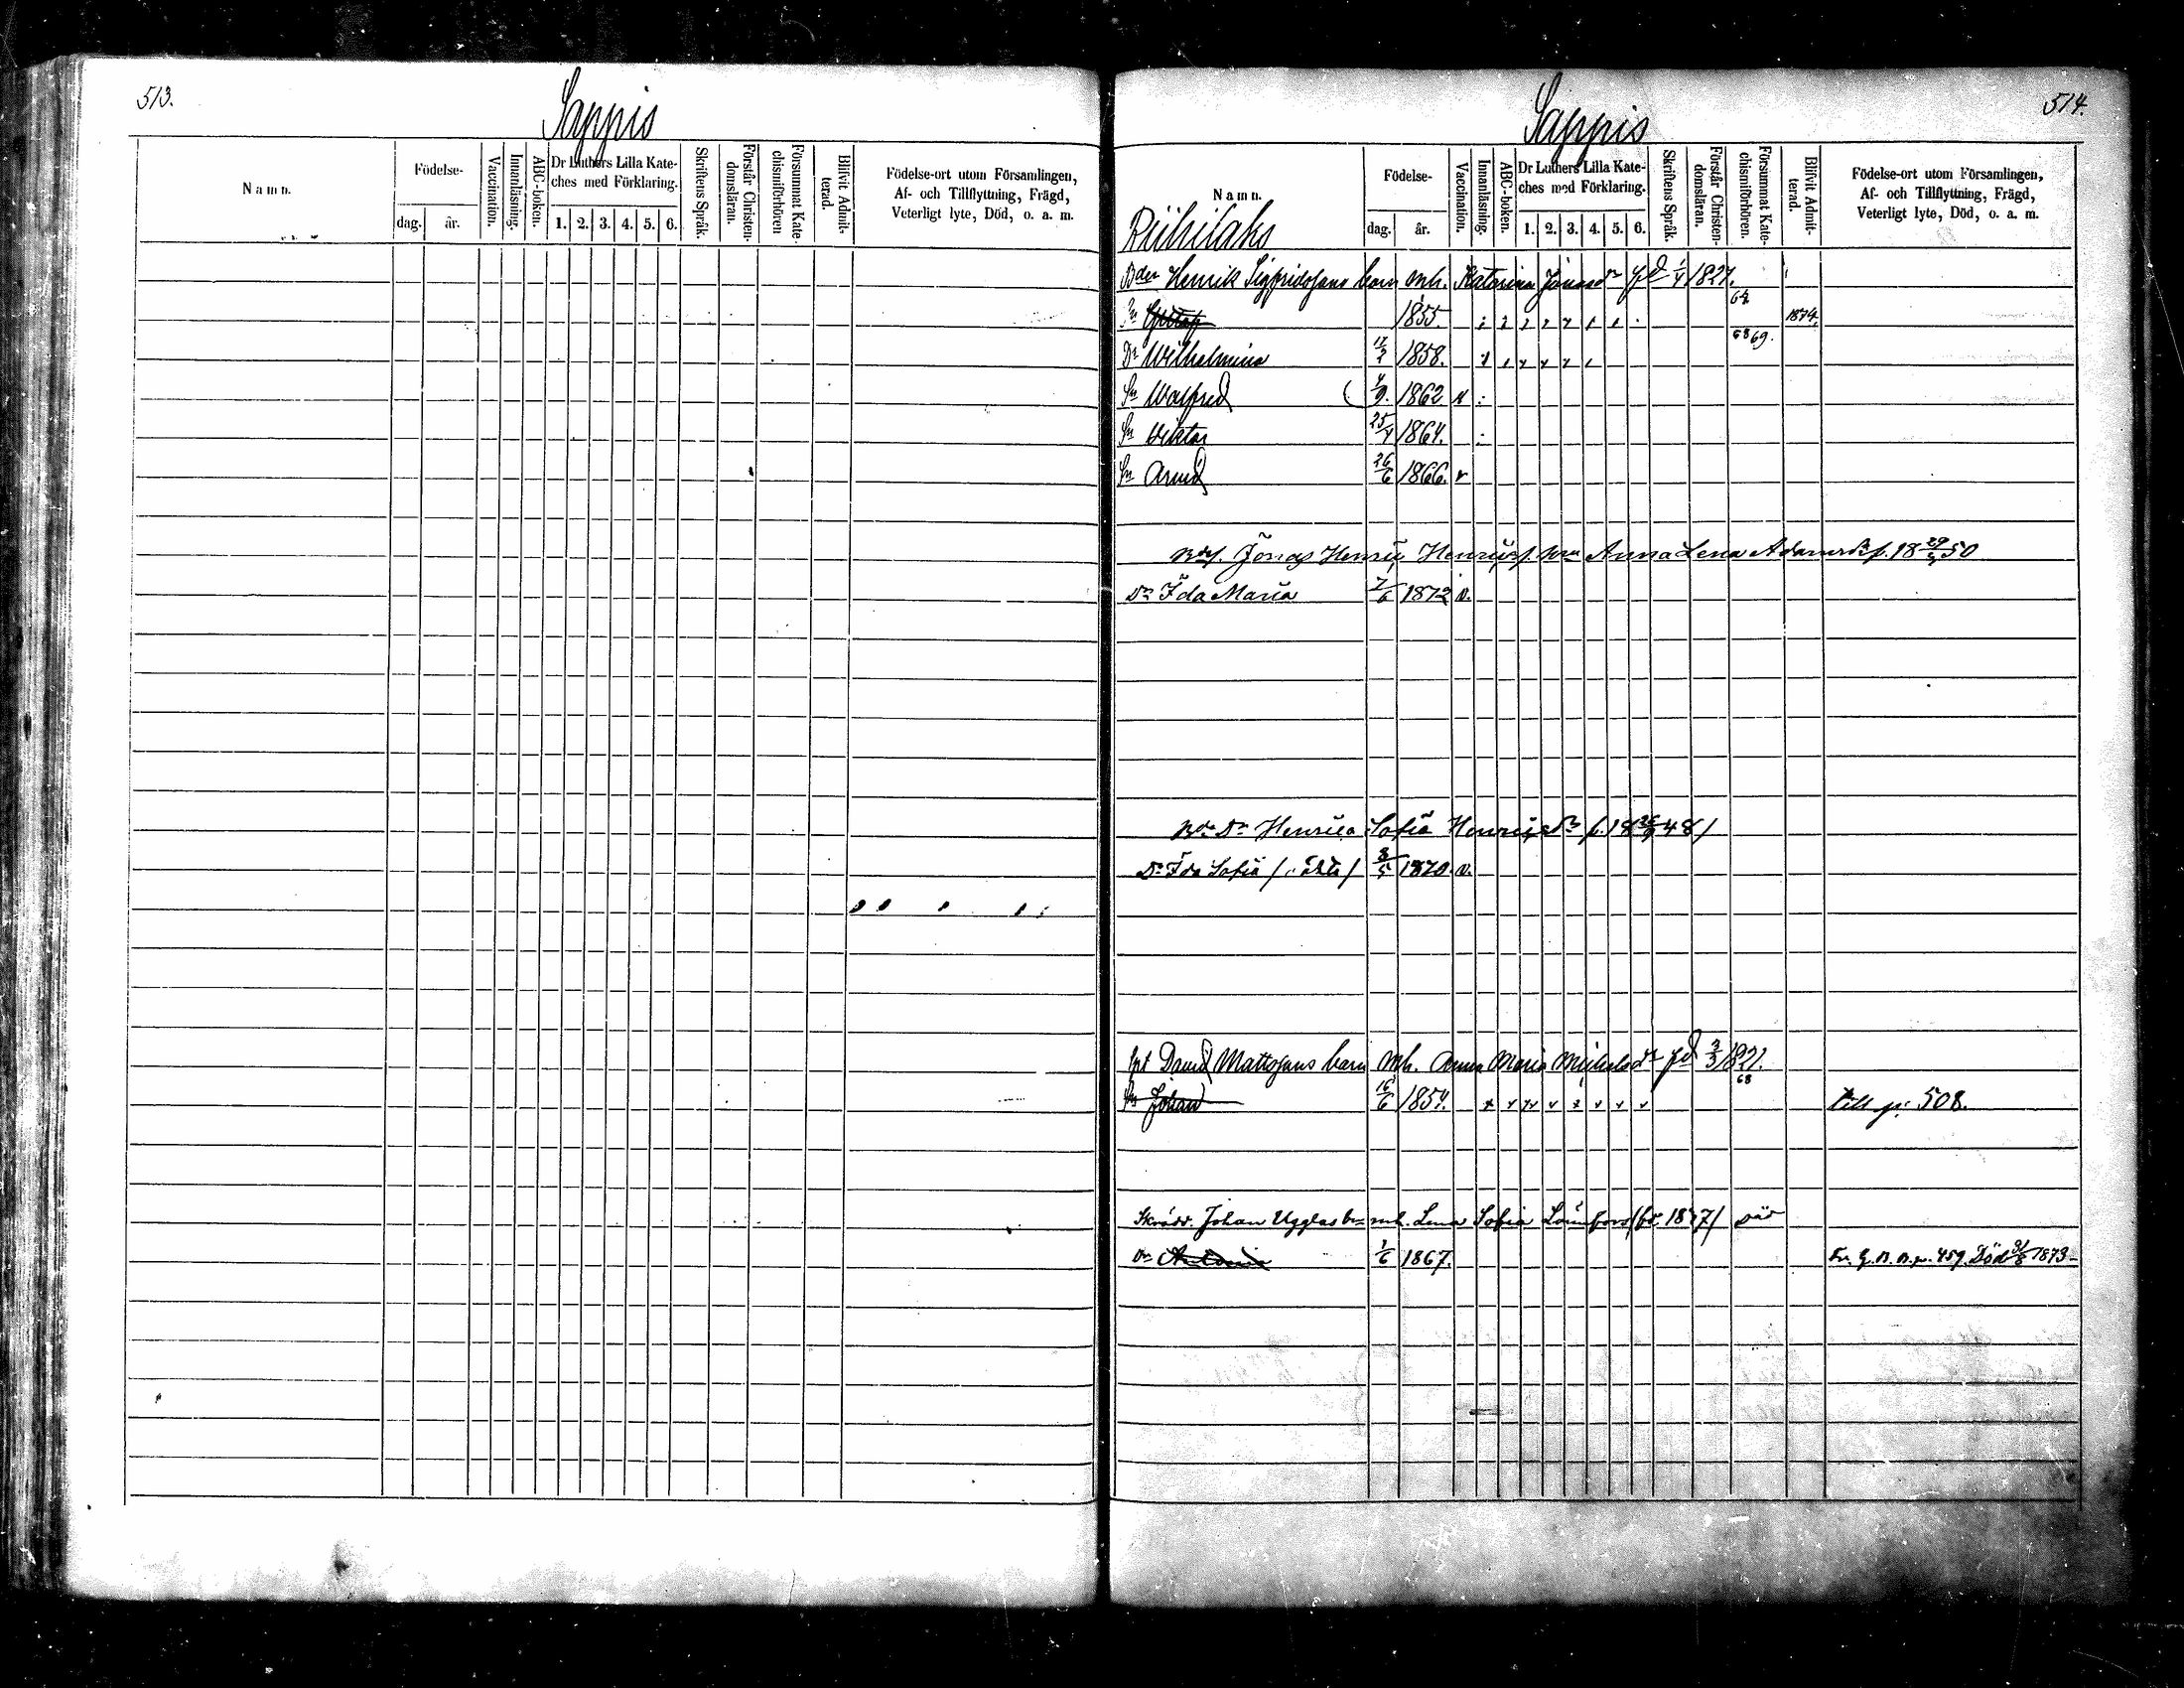 513.
Sappis
Namn.
Födelse-
dag.
år.
Vaccination.
Innanläsning.
ABC-boken.
Dr Luthers Lilla Kate-
ches med Förklaring.
1. 2. 3. 4. 5. 6.
Skriftens Språk.
Förstår Christen-
domsläran.
Försummat Kate-
chismiförhören
Blifvit Admit-
terad.
Födelse-ort utom Församlingen,
Af- och Tillflyttning, Frägd,
Veterligt lyte, Död, o. a. m.
514.
Sappis
Namn.
Födelse-
dag.
år.
Vaccination.
Innanläsning.
ABC-boken.
Dr Luthers Lilla Kate-
ches med Förklaring.
1. 2. 3. 4. 5. 6.
Skriftens Språk.
Förstår Christen-
domsläran.
Försummat Kate-
chismiförhören.
Blifvit Admit-
terad.
Födelse-ort utom Församlingen,
Af- och Tillflyttning, Frägd,
Veterligt lyte, Död, o. a. m.
Riihilaks
Henrik Sigfridssons barn mh. Katarina Jonasdr 1/4 1827.
1855. 1874.
Dr Wilhelmina 1858. 68 69.
Sn Walfred 4/9. 1862 v
Sn Viktor 25/4 1864.
Sn Arvid 26/6 1866. v
Jonas Henric Anna Lena Adamsdr f. 18 29/5 50
Dr Ida Maria 7/6 1872 v.
Dr Henrica Sofia f. 18 48/
Dr Ida Sofia 3/5 1870. v.
David Mattssons barn mh. Anna Maria Michelsdr 3/3 1821.
Sn Johan 16/6 1854. 68 till p: 508.
Johan Ugglas bn mh. Lena Sofia död
Dr 1/6 1867. p. 459. Död 31/8 1873